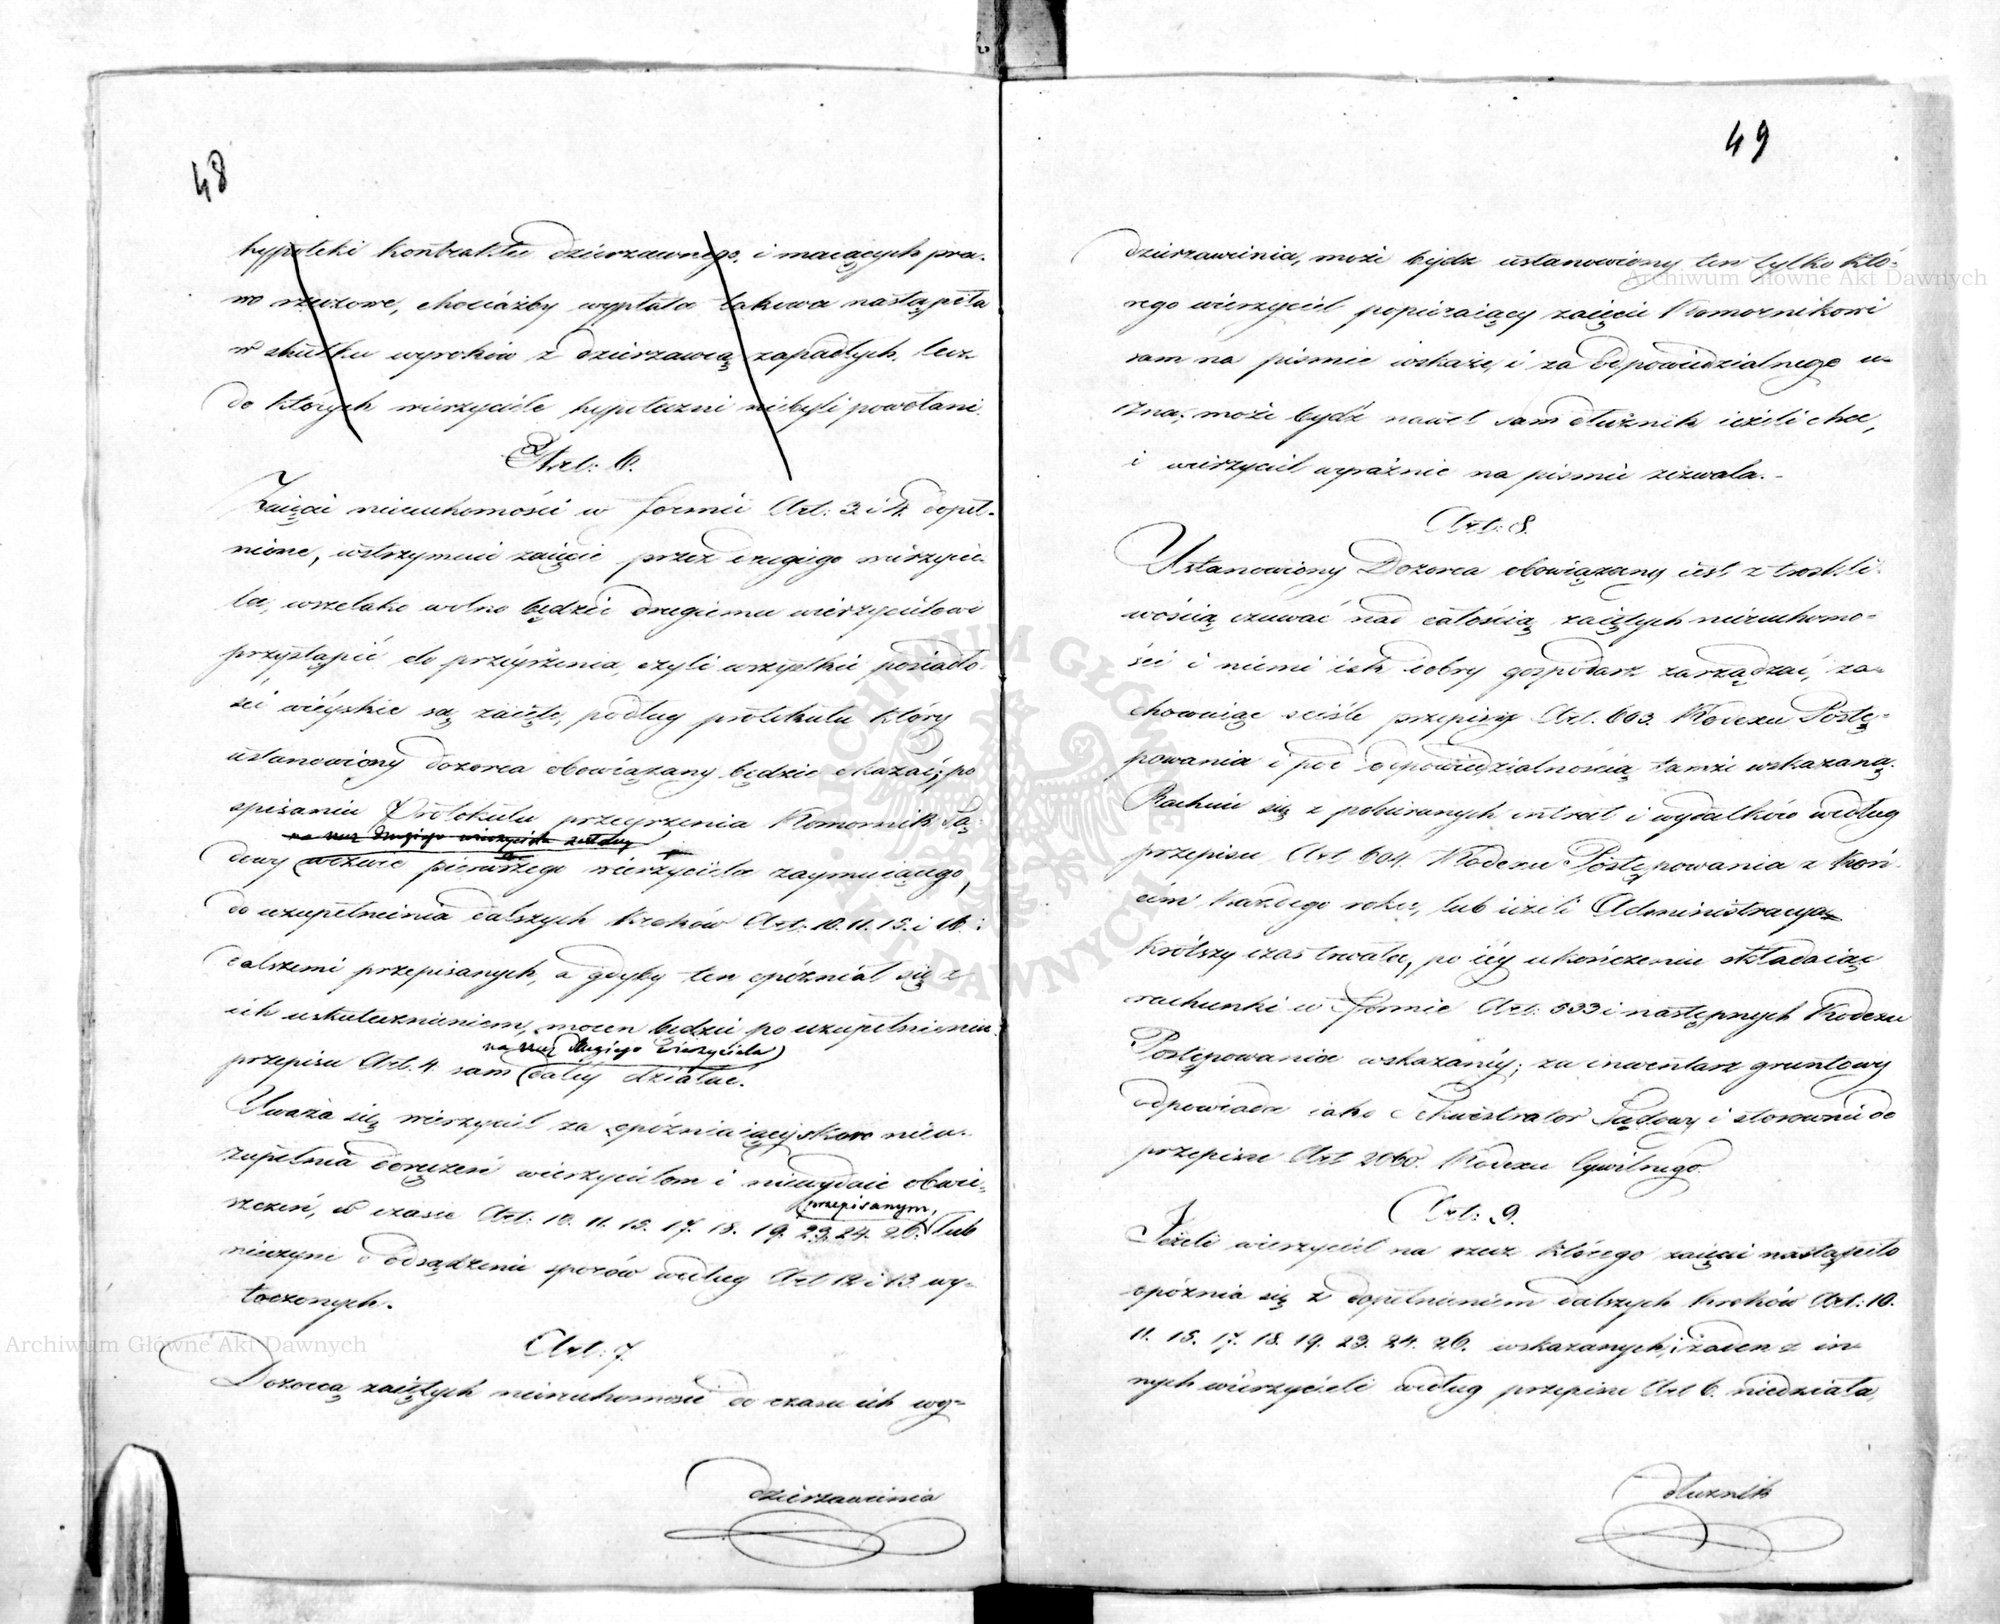 48
hypoteki kontraktu dzierzawnego, i maiących pra-
wo rzeczowe, chociażby wypłata takowa nastąpiła
w skutku wyroków z dzierzawcą zapadłych, lecz
do których wierzyciele hypoteczni niebyli powołani.
Art: 6.
Zaięcie nieruchomości w formie Art: 3. i 4. dopeł-
nione, wstrzymuie zaięcie przez drugiego wierzycie-
la, wszelako wolno będzie drugiemu wierzycielowi
przystąpić do przeyrżenia, czyli wszystkie posiadło-
ści wieyskie są zaięte, podług protokułu który
ustanowiony dozorca obowiązany będzie okazać; po
spisaniu Protokułu przeyrzenia Komornik Są-
na rzecz drugiego wierzyciela
dowy wezwie pierwszego wierzyciela zaymuiącego,
do uzupełnienia dalszych kroków Art: 10. 11. 15. i 16. i
dalszemi przepisanych, a gdyby ten opóźniał się z
ich uskutecznieniem, mocen będzie po uzupełnieniu
na rzecz drugiego wierzyciela
przepisu Art. 4. sam daley działać.
Uważa się wierzyciel za opóźniaiący skoro nieu-
zupełnia doręczeń wierzycielom i niewydaie obwie-
przepisanym,
szczeń, w czasie Art: 10. 11. 15. 17. 18. 19. 23. 24. 26. lub
nieczyni o osądzenie sporów według Art 12 i 13 wy-
toczonych.
Art: 7.
Dozorcą zaiętych nieruchomości do czasu ich wy-
dzierzawienia
49
dzierzawienia, może bydz ustanowiony ten tylko któ-
rego wierzyciel popieraiący zaięcie Komornikowi
sam na pismie wskaże, i za odpowiedzialnego u-
zna; może bydź nawet sam dłużnik ieżeli chce,
i wierzyciel wyraźnie na pismie zezwala.-
Art: 8.
Ustanowiony Dozorca obowiązany iest z troskli-
wością czuwać nad całością zaiętych nieruchomo-
ści i niemi iak dobry gospodarz zarządzać, za-
chowuiąc ściśle przepisy Art. 603. Kodexu Postę-
powania i pod odpowiedzialnością tamże wskazaną.
Rachuie się z pobieranych intrat i wydatków według
przepisu Art 604. Kodexu Postępowania z koń-
cem każdego roku, lub ieżeli Administracya
krótszy czas trwała, po iey ukończeniu składaiąc
rachunki w formie Art: 533 i następnych Kodexu
Postępowania wskazaney; za inwentarz gruntowy
odpowiada iako Sekwestrator Sądowy i stosownie do
przepisu Art 2060. Kodexu Cywilnego.
Art: 9.
Jeżeli wierzyciel na rzecz którego zaięcie nastąpiło
opóźnia się z dopełnieniem dalszych kroków Art: 10.
11. 15. 17. 18. 19. 23. 24. 26. wskazanych, i żaden z in-
nych wierzycieli według przepisu Art 6. niedziała,
dłużnik
Archiwum Główne Akt Dawnych
Archiwum Główne Akt Dawnych
ARCHIWUM GŁÓWNE AKT DAWNYCH